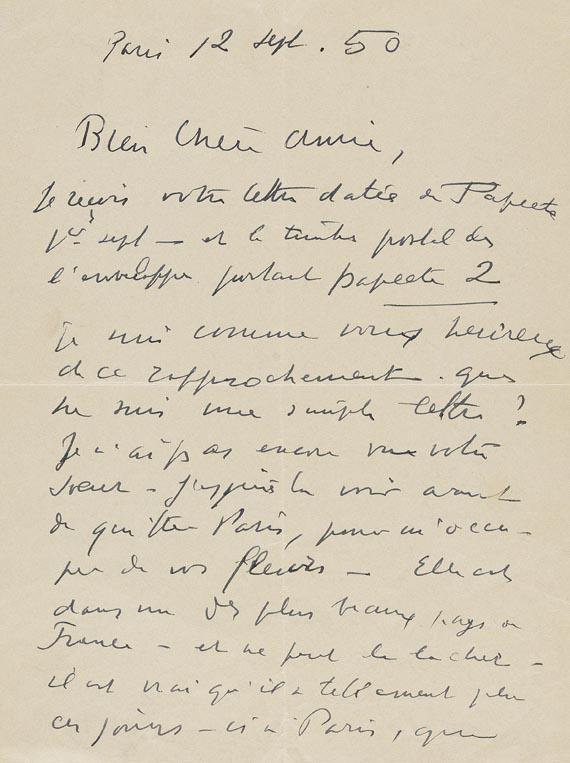 Paris 12 sept. 50
Bien chère amie,
Je reçois votre lettre datée de Papeete
1er sept – et le timbre postal de
l'enveloppe portant papeete 2
Je suis comme vous heureux
de ce rapprochement. que
ne suis une simple lettre !
Je n'ai pas encore vue votre
soeur – J'espère la voir avant
de quitter Paris, pour m'occu-
per de vos fleurs – Elle est
dans un des plus beaux pays de
France – et ne peut le lacher –
il est vrai qu'il a tellement plu
ces jours – ci à Paris, que